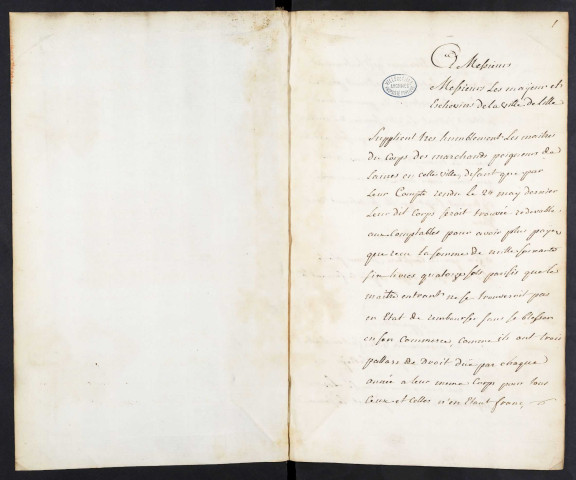 1
A Messieurs
Messieurs Les majeur et
Eschevins de la ville de Lille
Supplient tres humblement Les maitres
du Corps des marchands peigneurs de
Laines en cette ville, disant que par
Leur Compte rendu le 24 may dernier
Leur dit Corps seroit trouvé redevable
aux Comptables pour avoir plus payé
que recu la somme de mille soixante
six livres quatorze sols parisis que les
maitres entrant ne se trouveroit pas
en Etat de rembourser sans se blesser
en son Commerce, comme ils ont trois
pattars de Droit dûe par chaque
année a leur meme Corps pour tous
Ceux et Celles n'en Etant franc,